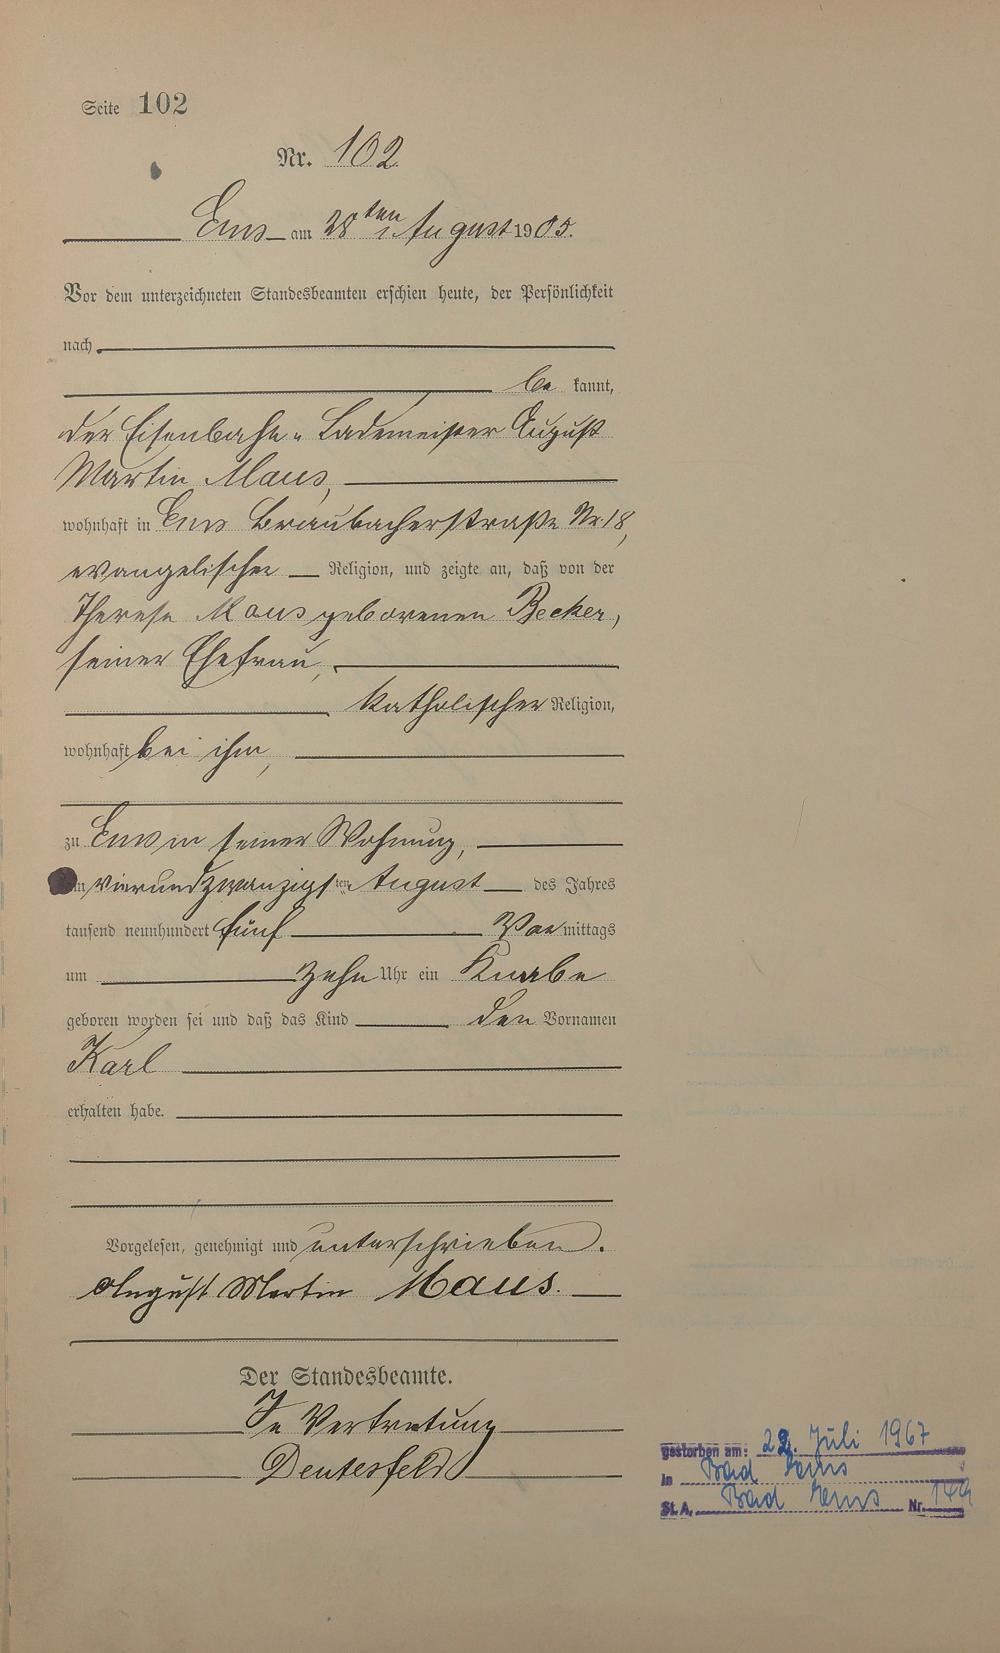 Seite 102
Nr. 102
Ems am 28ten August 1905.
Vor dem unterzeichneten Standesbeamten erschien heute, der Persönlichkeit
nach
be kannt,
der Eisenbahn-Lademeister August
Martin Maus,
wohnhaft in Ems Braubacherstraße Nr. 18,
evangelischer Religion, und zeigte an, daß von der
Therese Maus geborenen Becker,
seiner Ehefrau,
katholischer Religion,
wohnhaft bei ihm,
zu Ems in seiner Wohnung,
am vierundzwanzigsten August des Jahres
tausend neunhundert fünf Vor mittags
um zehn Uhr ein Knabe
geboren worden sei und daß das Kind den Vornamen
Karl
erhalten habe.
Vorgelesen, genehmigt und unterschrieben.
August Martin Maus.
Der Standesbeamte.
In Vertretung
Deutesfeld
gestorben am: 22. Juli 1967
in Bad Ems
St.A. Bad Ems Nr.